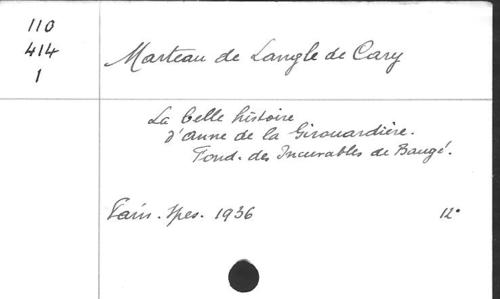 110
414
1
Marteau de Langle de Cary
La belle histoire
d'Anne de la Girouardière.
Fond. des Incurables de Baugé.
Paris. Spes. 1936 12°